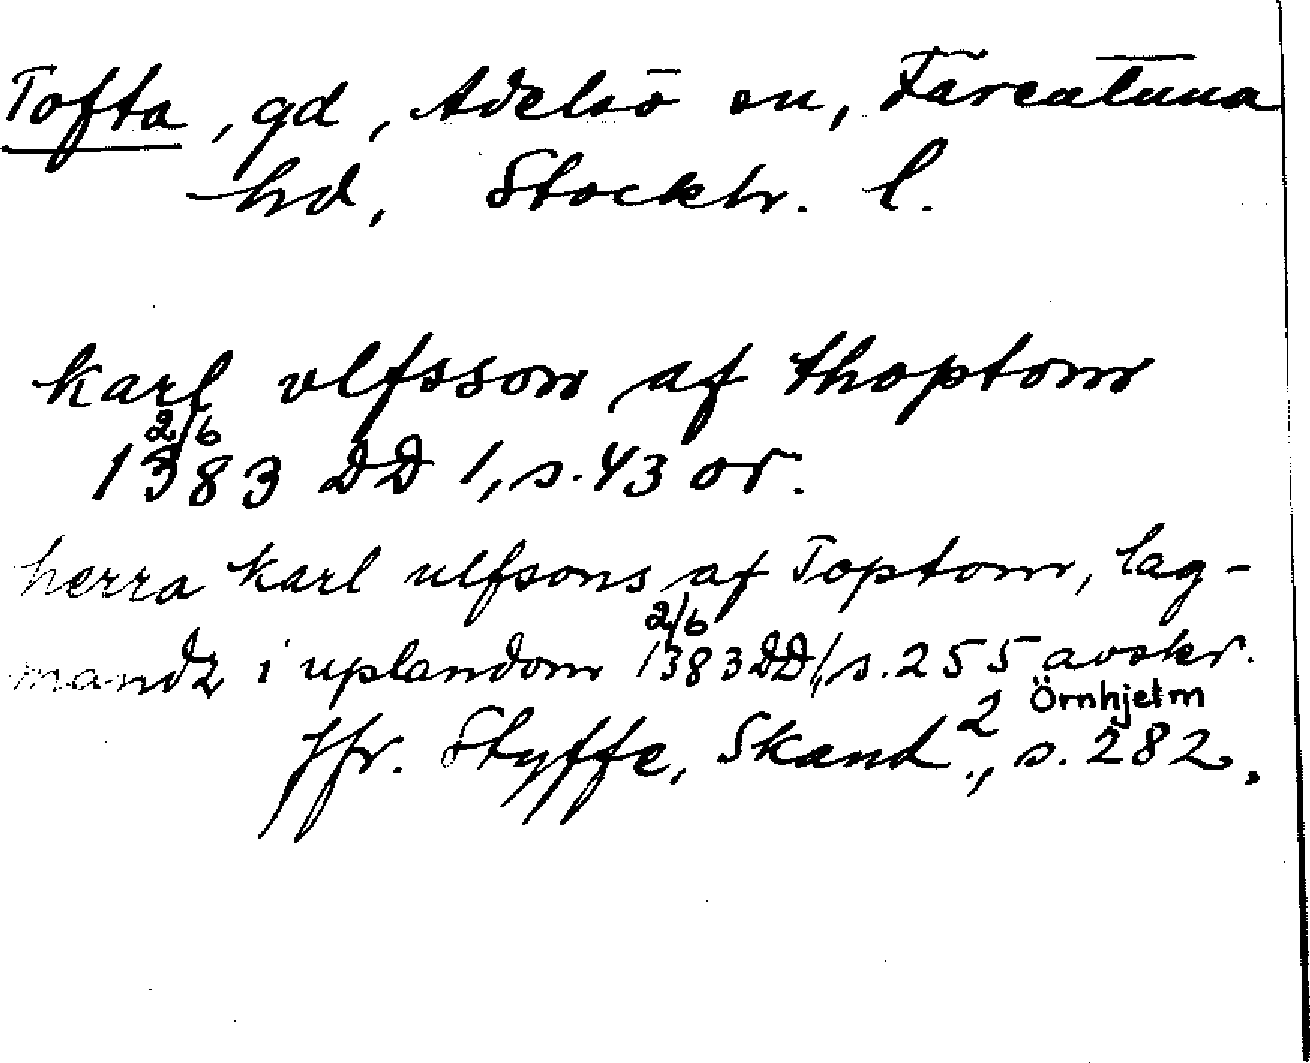 Tofta, gd, Adelsö sn, Färentuna
hd, Stockh. l.
karl vlfsson af thoptom
2/6
1383 DD 1, s. 43 or.
herra karl ulfsons af Toptom, lag-
2/6
mandz i uplandom 1383 DD 1, s. 255 avskr.
Örnhjelm
Jfr. Styffe, Skand.2, s. 282.